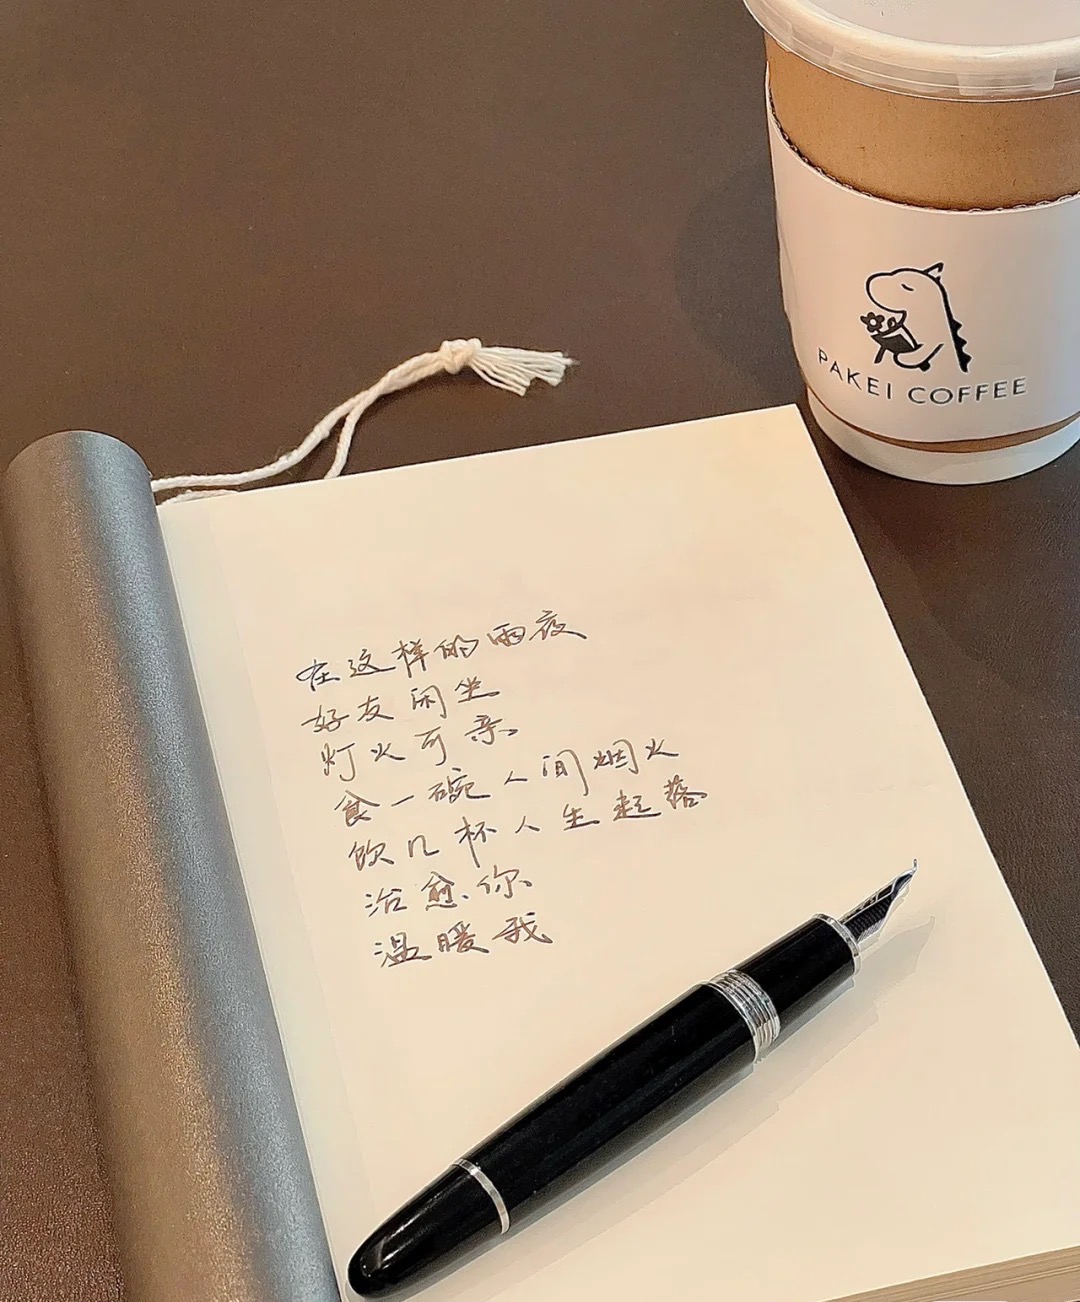 PAKEI COFFEE
在这样的雨夜
好友闲坐
灯火可亲
食一碗人间烟火
饮几杯人生起落
治愈你
温暖我